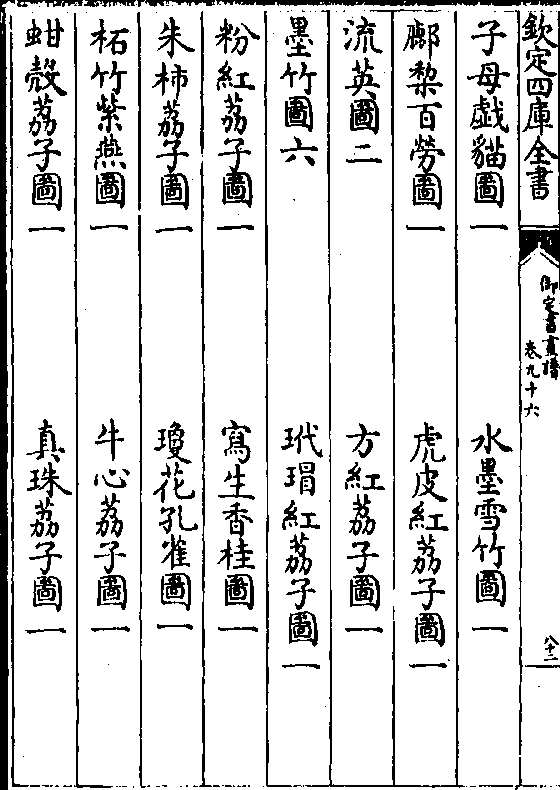 欽定四庫全書
御定書畫譜
卷九十六
八十二
子母戯貓圖一
水墨雪竹圖一
郙棃百勞圖一
虎皮紅荔子圖一
流英圖二
方紅荔子圖一
墨竹圖六
玳瑁紅荔子圖一
粉紅荔子圖一
寫生香桂圖一
朱柿荔子圖一
瓊花孔雀圖一
柘竹紫燕圖一
牛心荔子圖一
蚶殼荔子圖一
真珠荔子圖一